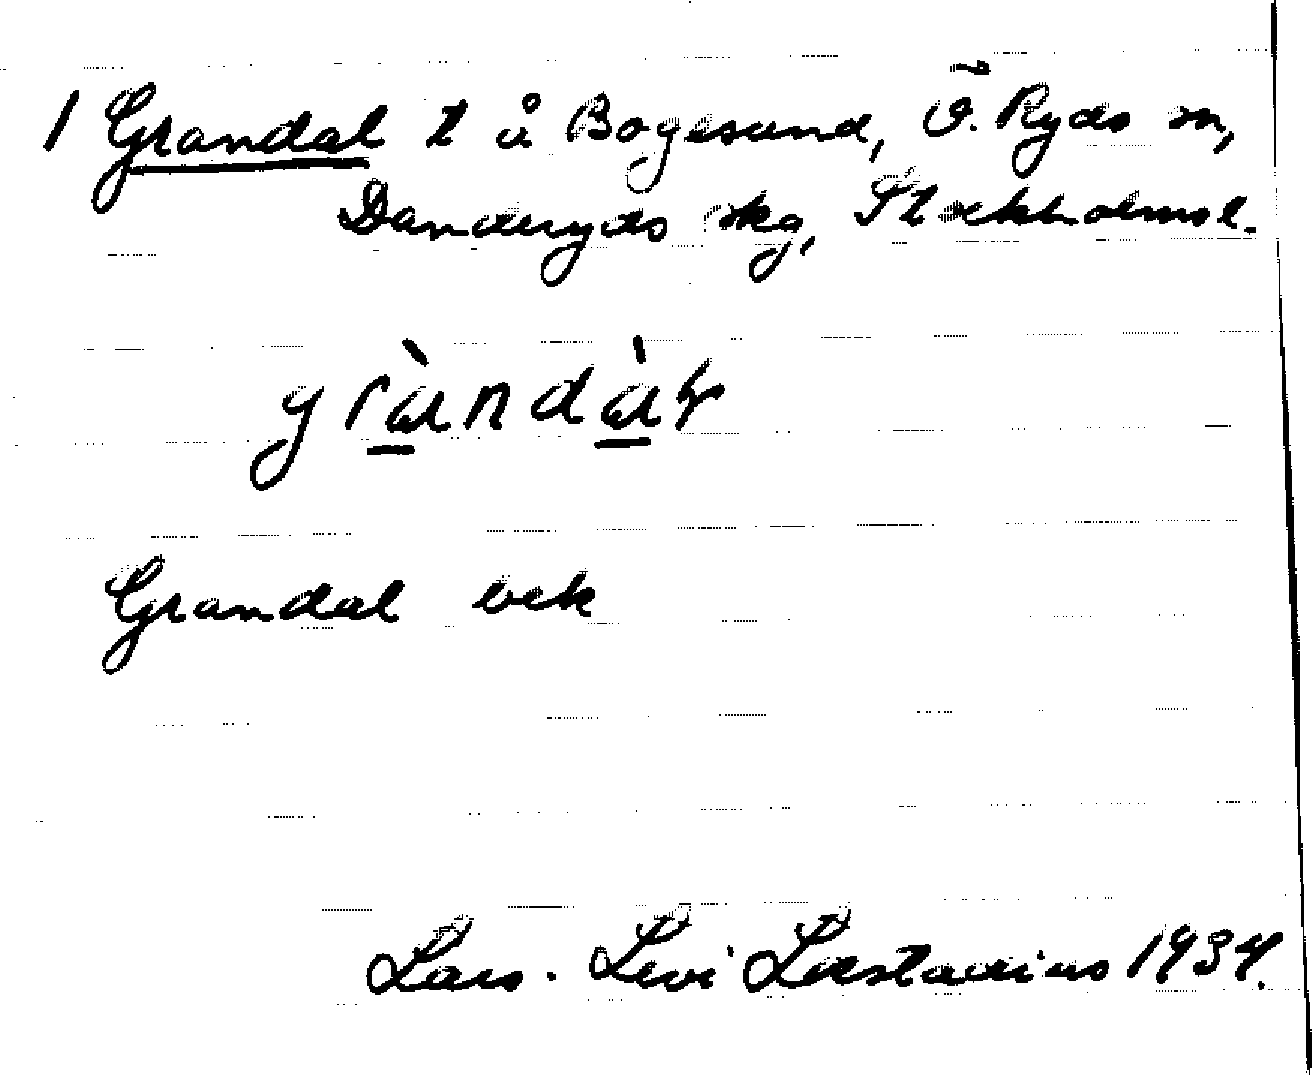 1 Grandal t å Bogesund, Ö. Ryds sn,
Danderyds skg, Stockholms l.
gràndàr
Grandal eck
Lars-Levi Læstadius 1934.